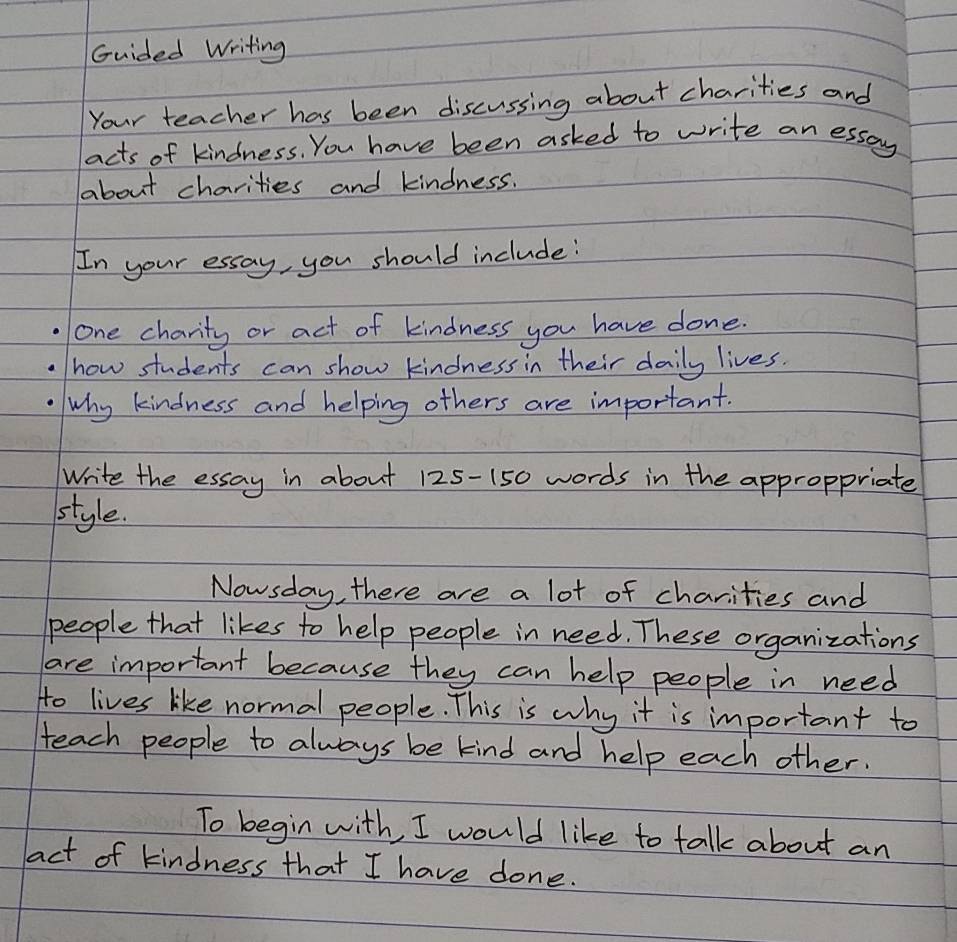 Guided Writing
Your teacher has been discussing about charities and
acts of kindness. You have been asked to write an essay
about charities and kindness.
In your essay, you should include:
• one charity or act of kindness you have done.
• how students can show kindness in their daily lives.
• why kindness and helping others are important.
Write the essay in about 125-150 words in the approppriate
style.
Nowsday, there are a lot of charities and
people that likes to help people in need. These organizations
are important because they can help people in need
to lives like normal people. This is why it is important to
teach people to always be kind and help each other.
To begin with, I would like to talk about an
act of kindness that I have done.